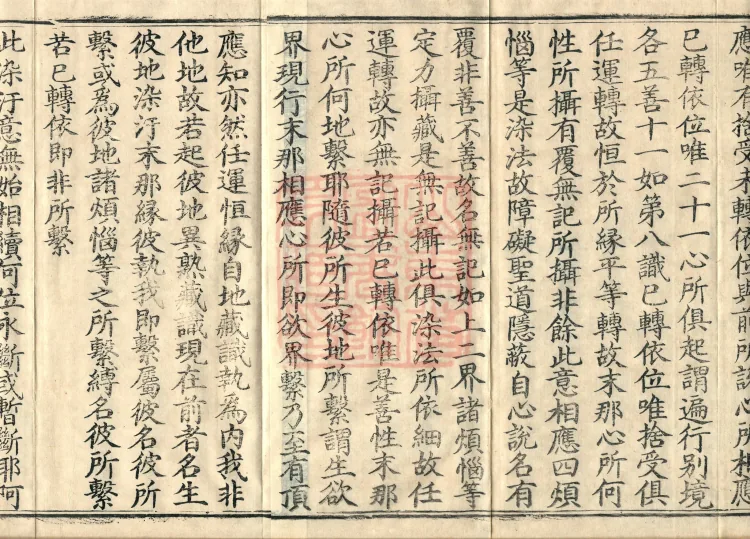 應唯有捨受未轉依位與前所說心所相應
已轉依位唯二十一心所俱起謂遍行別境
各五善十一如第八識已轉依位唯捨受俱
任運轉故恒於所緣平等轉故末那心所何
性所攝有覆無記所攝非餘此意相應四煩
惱等是染法故障礙聖道隱蔽自心說名有
覆非善不善故名無記如上二界諸煩惱等
定力攝藏是無記攝此俱染法所依細故任
運轉故亦無記攝若已轉依唯是善性末那
心所何地繫耶隨彼所生彼地所繫謂生欲
界現行末那相應心所即欲界繫乃至有頂
應知亦然任運恒緣自地藏識執爲內我非
他地故若起彼地異熟藏識現在前者名生
彼地染汙末那緣彼執我即繫屬彼名彼所
繫或爲彼地諸煩惱等之所繫縛名彼所繫
若已轉依即非所繫
此染汙意無始相續何位永斷或暫斷耶阿